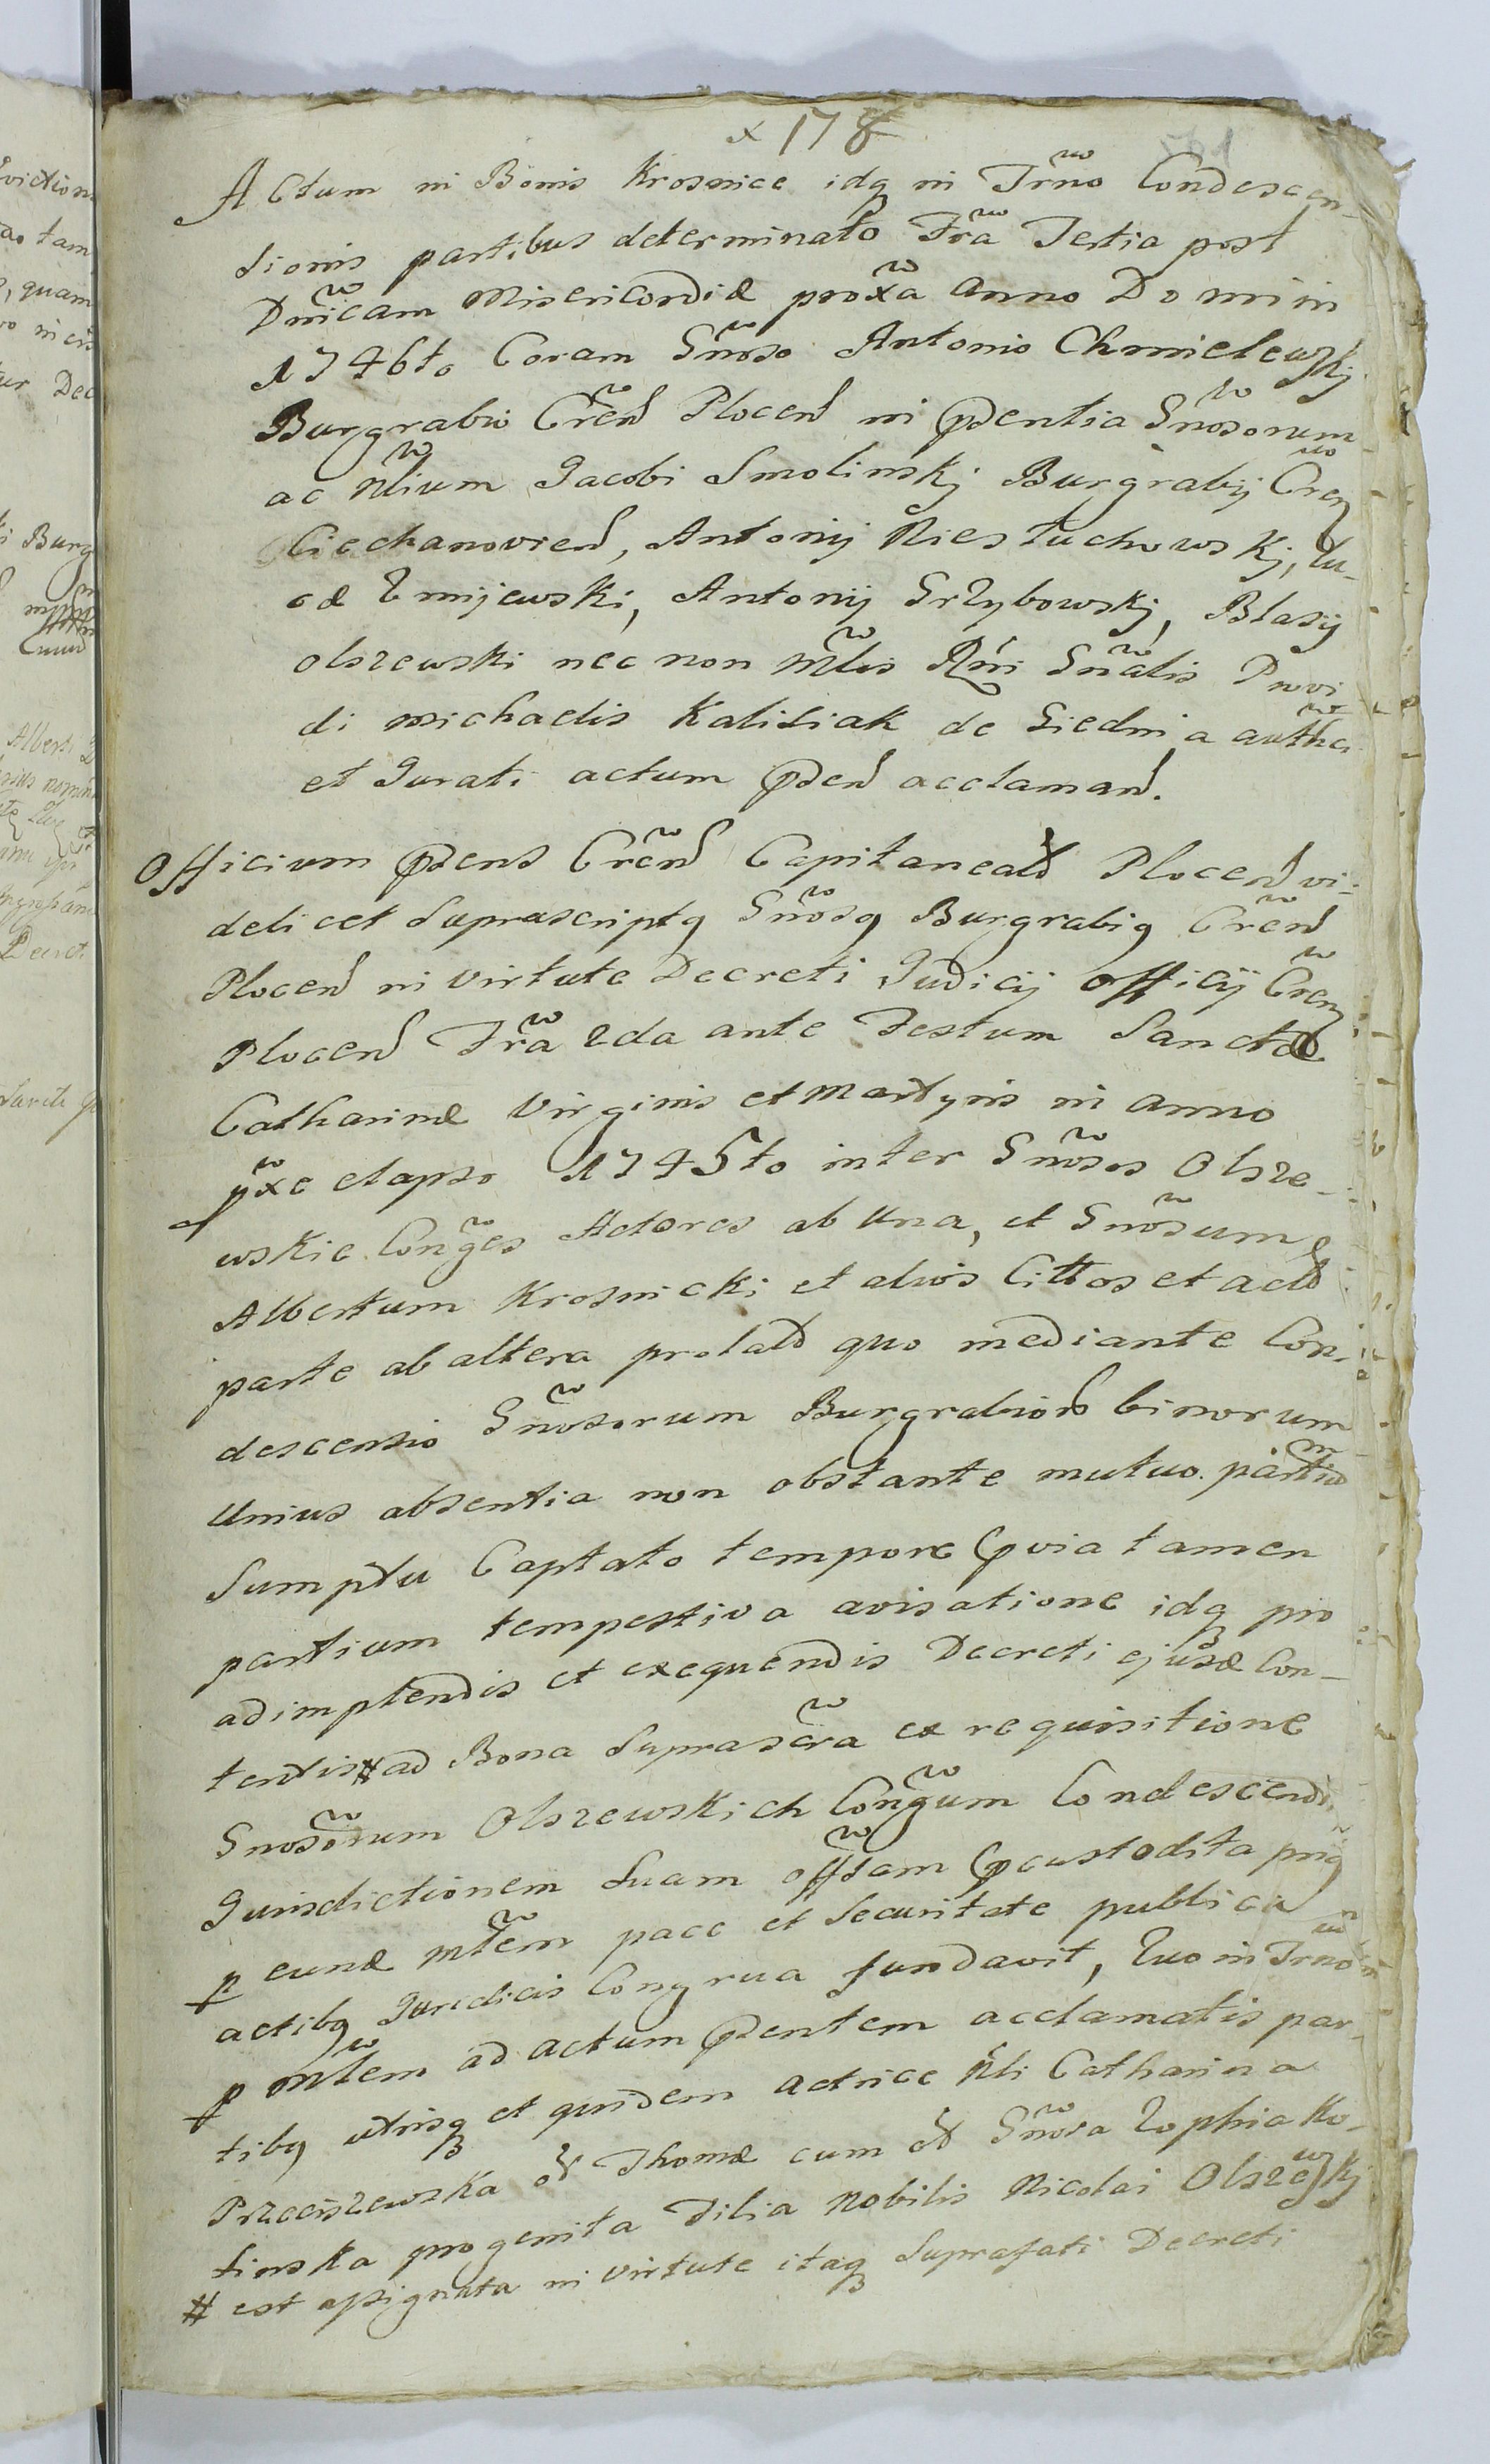 x 178
Actum in Bonis Krosnice idq in Trno Condescen-
sionis partibus determinato Fra Tertia post
Dnicam Misericordiæ proxa anno Domini
1746to Coram Gnoso Antonio Chmielewskj
Burgrabio Cren Plocen in pnsentia Gnosorum
ac Nlium Jacobi Smolinskj Burgrabij Cren
Ciechanovien, Antonij Niestuchowskj, Lu-
cæ Zmijewski, Antonij Grzybowskj, Blasij
Olszewski nec non Mlis Rni Gnalis Provi
di Michaelis Kalisiak de Siedni a authci
et Jurati actum pnsen acclaman.
Officium pnsens Cren Capitaneale Plocen vi-
delicet Suprascriptq Gnosq Burgrabiq Cren
Plocen in virtute Decreti Judicij officij Cren
Plocen Fra 2da ante Festum Sanctæ
Catharinæ Virginis et Martyris in anno
pxe elapso 1745to inter Gnosos Olsze-
wskie Conges Actores ab Una, et Gnosum
Albertum Krosnicki et alios Cittos et act
parte ab altera prolat quo mediante Con-
descensio Gnosorum Burgrabior binorum
Unius absentia non obstante mutuo partiu
Sumptu Captato tempore prvia tamen
partium tempestiva avisatione idq pro
adimplendis et exequendis Decreti ejusd Con-
tentis # ad Bona Suprascra ex requisitione
Gnosorum Olszewskich Congum Condescendi
Jurisdictionem Suam offsam pcustodita priq
p eund Mlem pace et Securitate publica
actibq Juredicis Congrua fundavit, Quo in Trno
p Mlem ad actum pnsentem acclamatis par-
tibq utrisq et quidem actrice Nli Catharina
Przeciszewska Thomæ cum Gnosa Zophia Ko-
linska progenita Filia Nobilis Nicolai Olszewskj
# est assignata in virtute itaq Suprafati Decreti